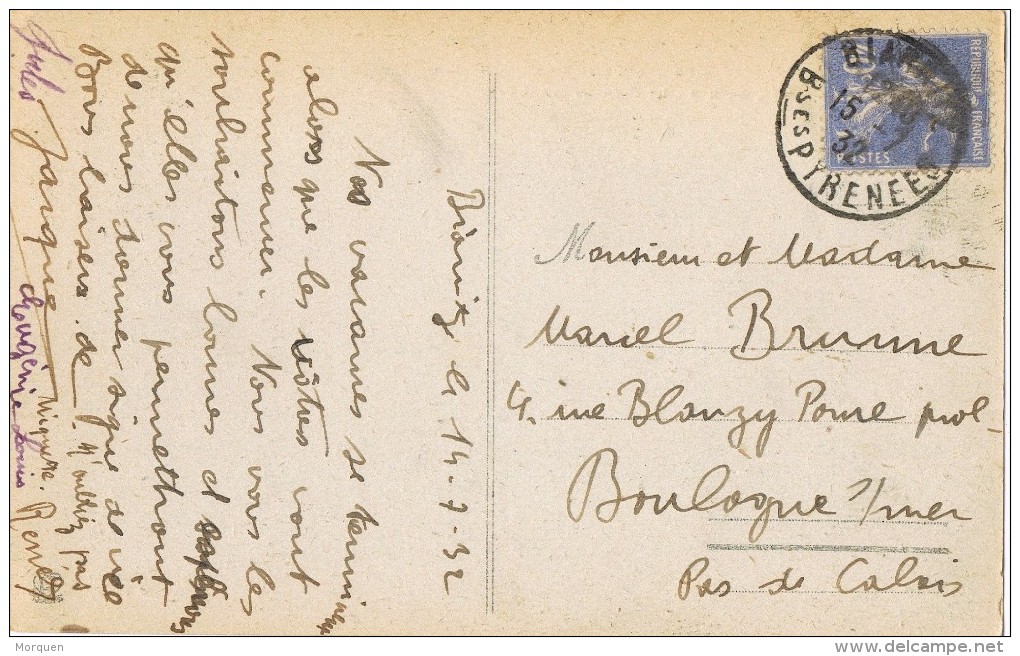 Biarritz le 14-7-32
Nos vacances se terminent
alors que les vôtres vont
commencer. Nous vous les
souhaitons bonnes et espérons
qu'elles vous permettront
de nous donner signe de vie
Bons baisers de N'oubliez pas
Jacques
Jules
Louis
BIARRITZ
15 -7
32
BSES PYRENEES
REPUBLIQUE FRANCAISE
POSTES
Monsieur et Madame
Marcel Brunne
4. rue Blanzy Poure prol-
Boulogne s/mer
Pas de Calais
Morquen
delcampe.net